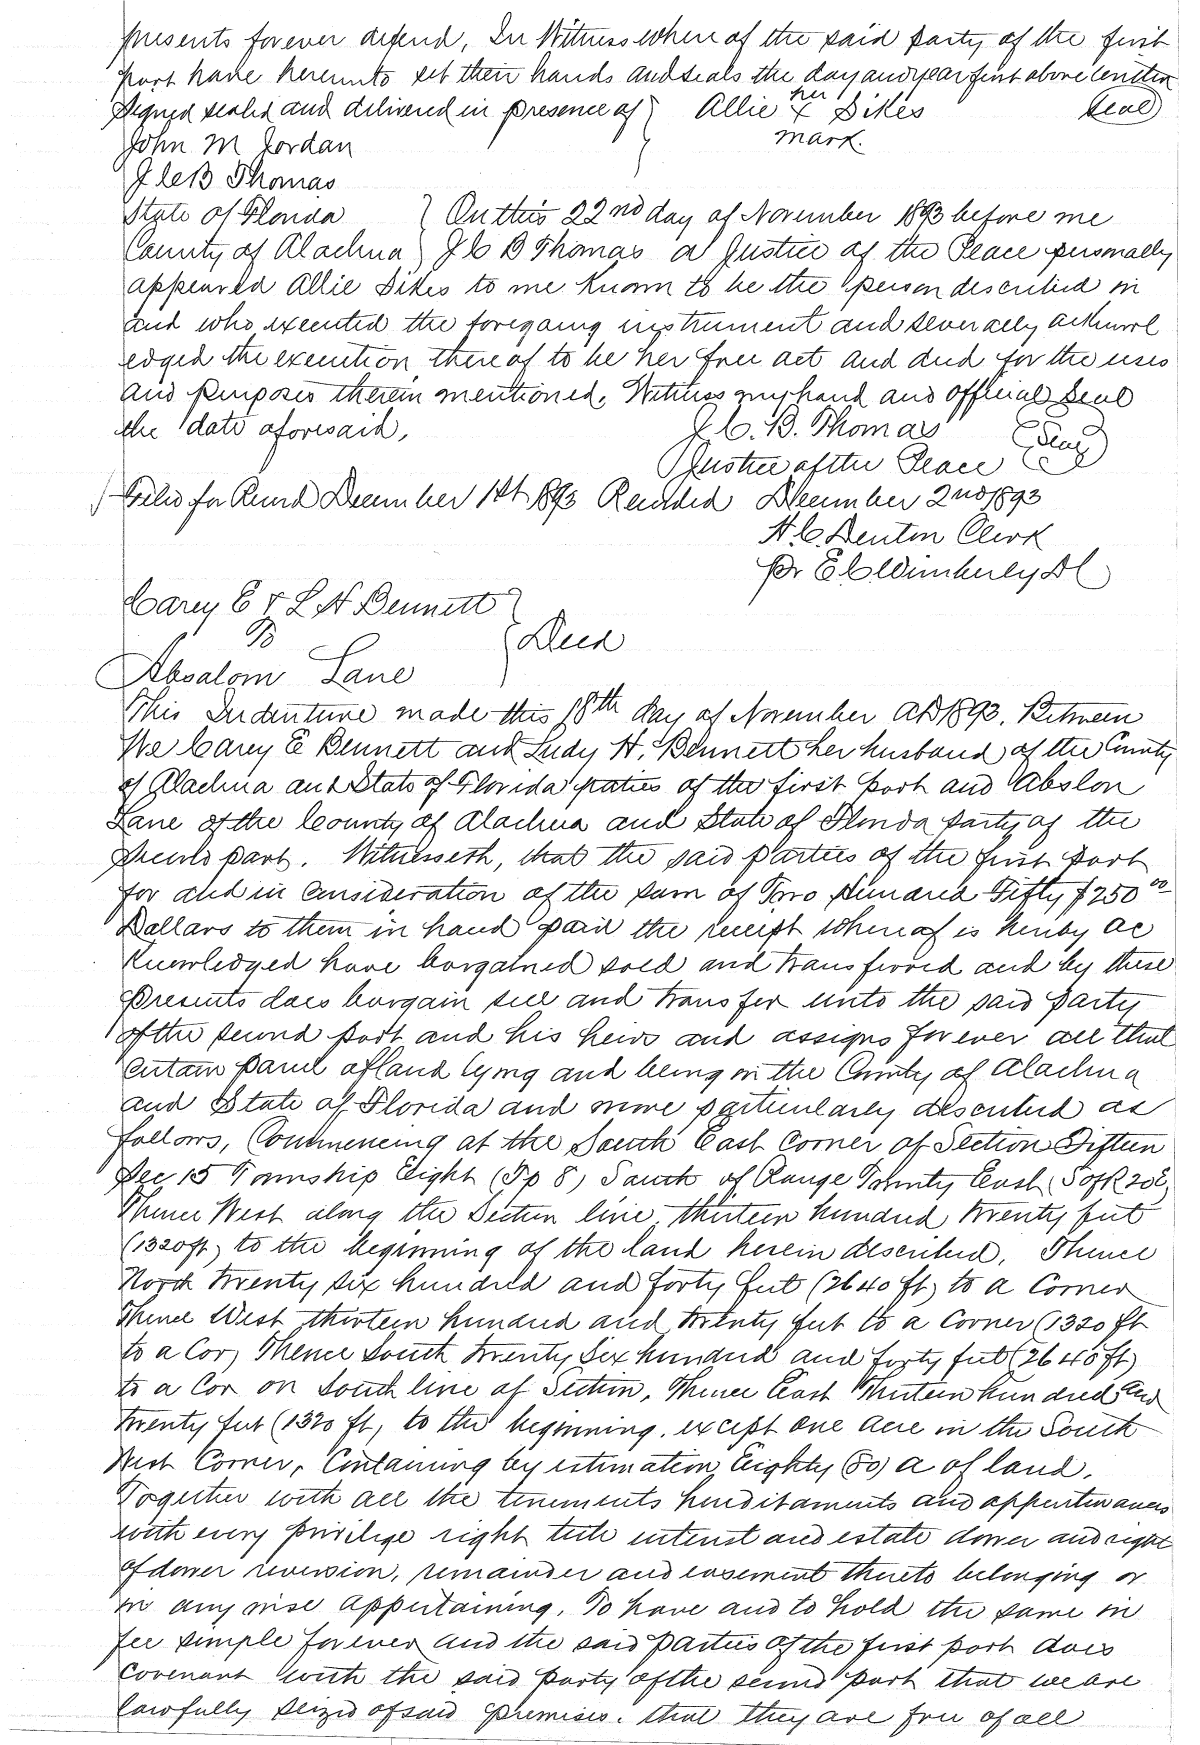 presents forever defend, In Witness where of the said party of the first
part have hereunto set their hands and seals the day and year first above written
Signed sealed and delivered in presence of } Allie her x Sikes Seal
John M Jordan mark.
J C B Thomas
State of Florida } On this 22nd day of November 1893 before me
County of Alachua } J C B Thomas a Justice of the Peace personally
appeared Allie Sikes to me known to be the person described in
and who executed the foregoing instrument and severally acknowl
edged the execution there of to be her free act and deed for the uses
and purposes therein mentioned. Witness my hand and official Seal
the date aforesaid, J. C. B. Thomas Seal
Justice of the Peace
Filed for Record December 1st 1893 Recorded December 2nd 1893
H. C. Denton Clerk
Pr E C Wimberly DC
Carey E & L H Bennett }
To } Deed
Absalom Lane
This Indenture made this 18th day of November AD 1893. Between
We Carey E Bennett and Ludy H. Bennett her husband of the County
of Alachua and State of Florida paties of the first part and Abslon
Lane of the County of Alachua and State of Florida party of the
second part. Witnesseth, that the said parties of the first part
for and in consideration of the sum of Two Hundred Fifty $250 00
Dollars to them in hand paid the receipt whereof is hereby ac
knowledged have bargained sold and transferred and by these
presents does bargain sell and transfer unto the said party
of the second part and his heirs and assigns forever all that
certain parcel of land lying and being in the County of Alachua
and State of Florida and more particularly described as
follows, Commencing at the South East corner of Section Fifteen
Sec 15 Township Eight (Tp 8) South of Range Twenty East (S of R 20 E)
Thence West along the Section line thirteen hundred twenty feet
(1320 ft) to the beginning of the land herein described. Thence
North twenty six hundred and forty feet (2640 ft) to a Corner
Thence West thirteen hundred and twenty feet to a Corner (1320 ft
to a Cor) Thence South twenty Six hundred and forty feet (2640 ft)
to a Cor on South line of Section, Thence East Thirteen hundred and
twenty feet (1320 ft, to the beginning. except one acre in the South
West Corner, Containing by estimation Eighty (80) a of land.
Together with all the tenements hereditaments and appurtenances
with every privilige right title interest and estate dower and right
of dower reversion, remainder and easement thereto belonging or
in any wise appertaining. To have and to hold the same in
fee simple forever and the said parties of the first part does
covenant with the said party of the second part that we are
lawfully seized of said premises. that they are free of all